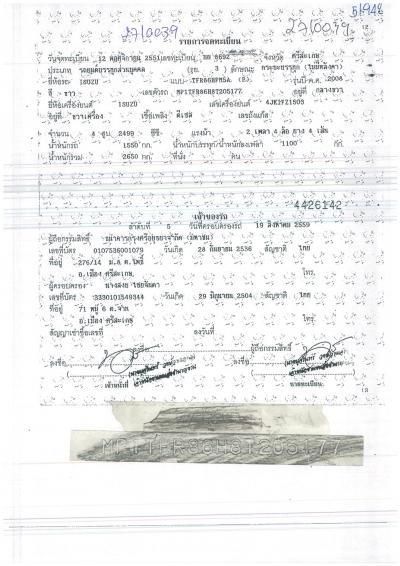 51948
2710039 2710039
รายการจดทะเบียน
วันจดทะเบียน 12 พฤศจิกายน 2551 เลขทะเบียน 6692 จังหวัด ศรีสะเกษ
ประเภท รถยนต์บรรทุกส่วนบุคคล (รย. 3 ) ลักษณะ กระบะบรรทุก
ยี่ห้อรถ ISUZU แบบ TFR86HPM5A รุ่นปี ค.ศ. 2008
สี ขาว เลขตัวรถ MP1TFR86H8T205177 อยู่ที่ กลางขวา
ยี่ห้อเครื่องยนต์ ISUZU เลขเครื่องยนต์ 4JK1FZ1503
อยู่ที่ ขวาเครื่อง เชื้อเพลิง ดีเซล เลขถังแก๊ส
จำนวน 4 สูบ 2499 ซีซี แรงม้า 2 เพลา 4 ล้อ ยาง 4 เส้น
น้ำหนักรถ 1550 กก. น้ำหนักบรรทุก/น้ำหนักลงเพลา 1100 กก.
น้ำหนักรวม 2650 กก. ที่นั่ง คน
4426142
เจ้าของรถ
ลำดับที่ 5 วันที่ครอบครองรถ 19 สิงหาคม 2559
ผู้ถือกรรมสิทธิ์ ธนาคารกรุงศรีอยุธยาจำกัด (มหาชน)
เลขที่บัตร 0107536001079 วันเกิด 28 กันยายน 2536 สัญชาติ ไทย
ที่อยู่ 276/14
อ.เมือง ศรีสะเกษ โทร.
ผู้ครอบครอง
เลขที่บัตร 3330101549344 วันเกิด 29 มิถุนายน 2504 สัญชาติ ไทย
ที่อยู่ 71 หมู่ 6
อ.เมือง ศรีสะเกษ โทร.
สัญญาเช่าซื้อเลขที่ ลงวันที่
ผู้ถือกรรมสิทธิ์
ลงชื่อ ลงชื่อ
เจ้าหน้าที่ นายทะเบียน
MP1TFR86H8T205177